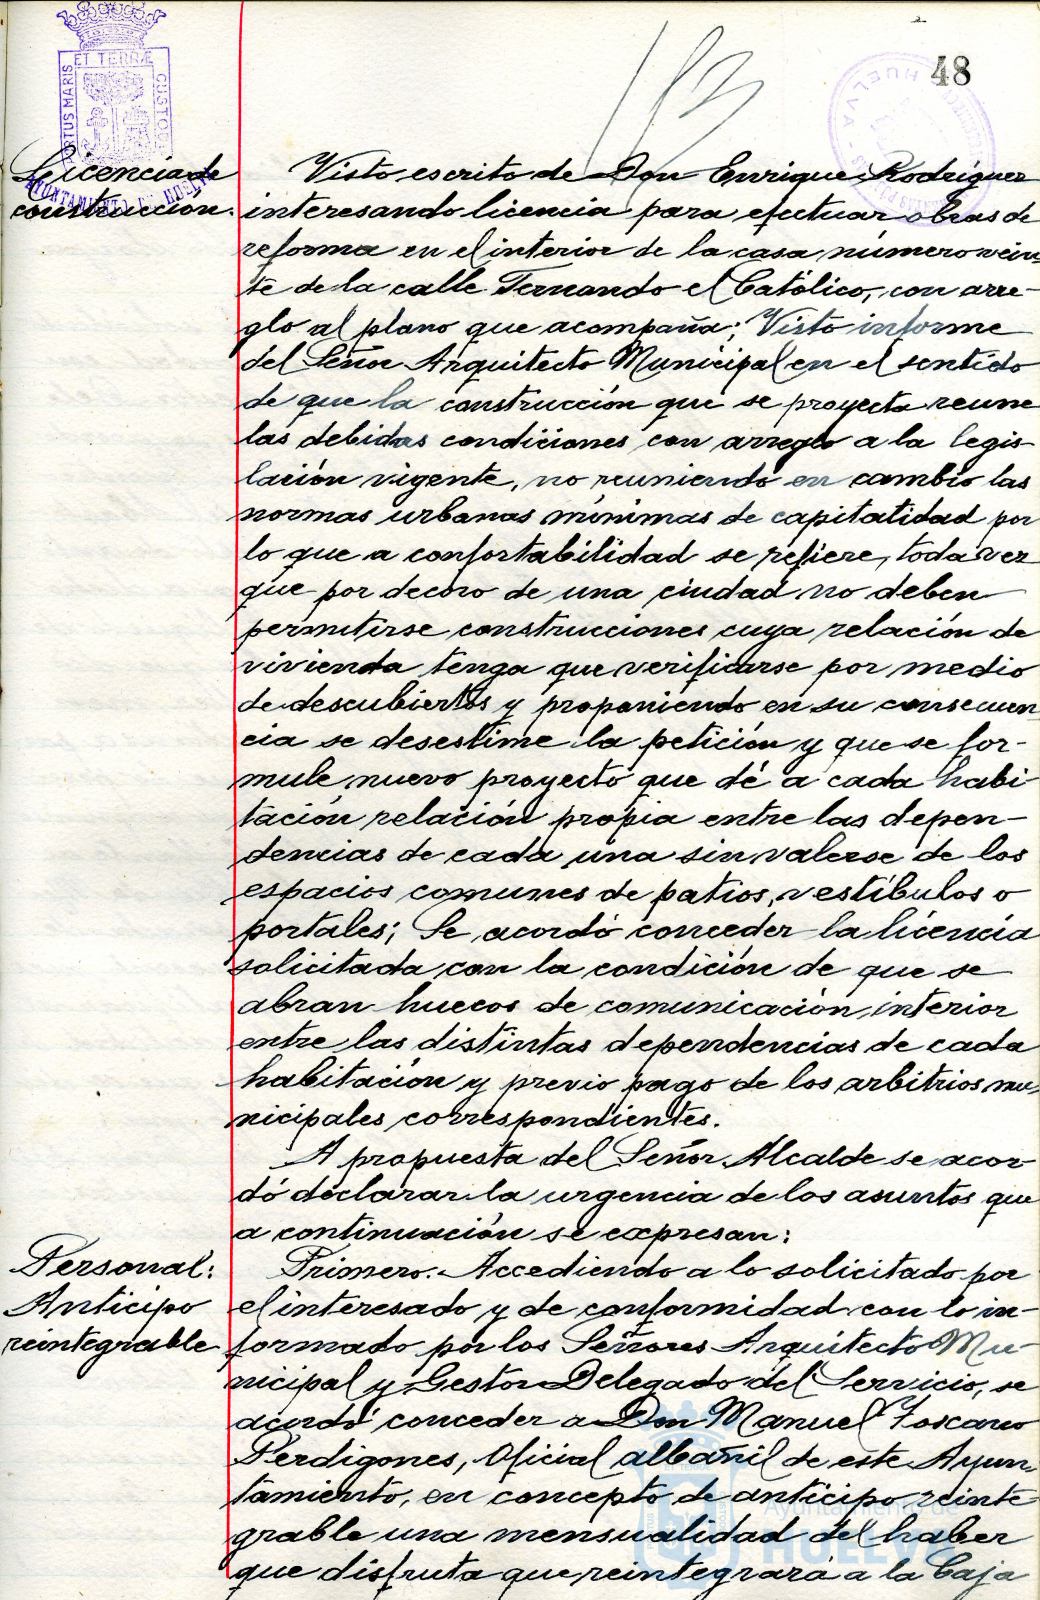 48
PORTUS MARIS ET TERRÆ CUSTODIA
AYUNTAMIENTO DE HUELVA
HUELVA
Licencia de
construccion.
Visto escrito de Don Enrique Rodríguez
interesando licencia para efectuar obras de
reforma en el interior de la casa número vein-
te de la calle Fernando el Católico, con arre-
glo al plano que acompaña; Visto informe
del Señor Arquitecto Municipal en el sentido
de que la construcción que se proyecta reune
las debidas condiciones con arreglo a la legis-
lación vigente, no reuniendo en cambio las
normas urbanas mínimas de capitalidad por
lo que a confortabilidad se refiere, toda vez
que por decoro de una ciudad no deben
permitirse construcciones cuya relación de
vivienda tenga que verificarse por medio
de descubiertos y proponiendo en su consecuen
cia se desestime la petición y que se for-
mule nuevo proyecto que dé a cada habi
tación relación propia entre las depen-
dencias de cada una sin valerse de los
espacios comunes de patios, vestíbulos o
portales; Se acordó conceder la licencia
solicitada con la condición de que se
abran huecos de comunicación interior
entre las distintas dependencias de cada
habitación y previo pago de los arbitrios mu-
nicipales correspondientes.
A propuesta del Señor Alcalde se acor
dó declarar la urgencia de los asuntos que
a continuación se expresan:
Personal:
Anticipo
reintegrable
Primero. Accediendo a lo solicitado por
el interesado y de conformidad con lo in-
formado por los Señores Arquitecto Mu-
nicipal y Gestor Delegado del Servicio, se
acordó conceder a Don Manuel Toscano
Perdigones, Oficial albañil de este Ayun-
tamiento, en concepto de anticipo reinte
grable una mensualidad del haber
que disfruta que reintegrará a la Caja
Ayuntamiento de
HUELVA